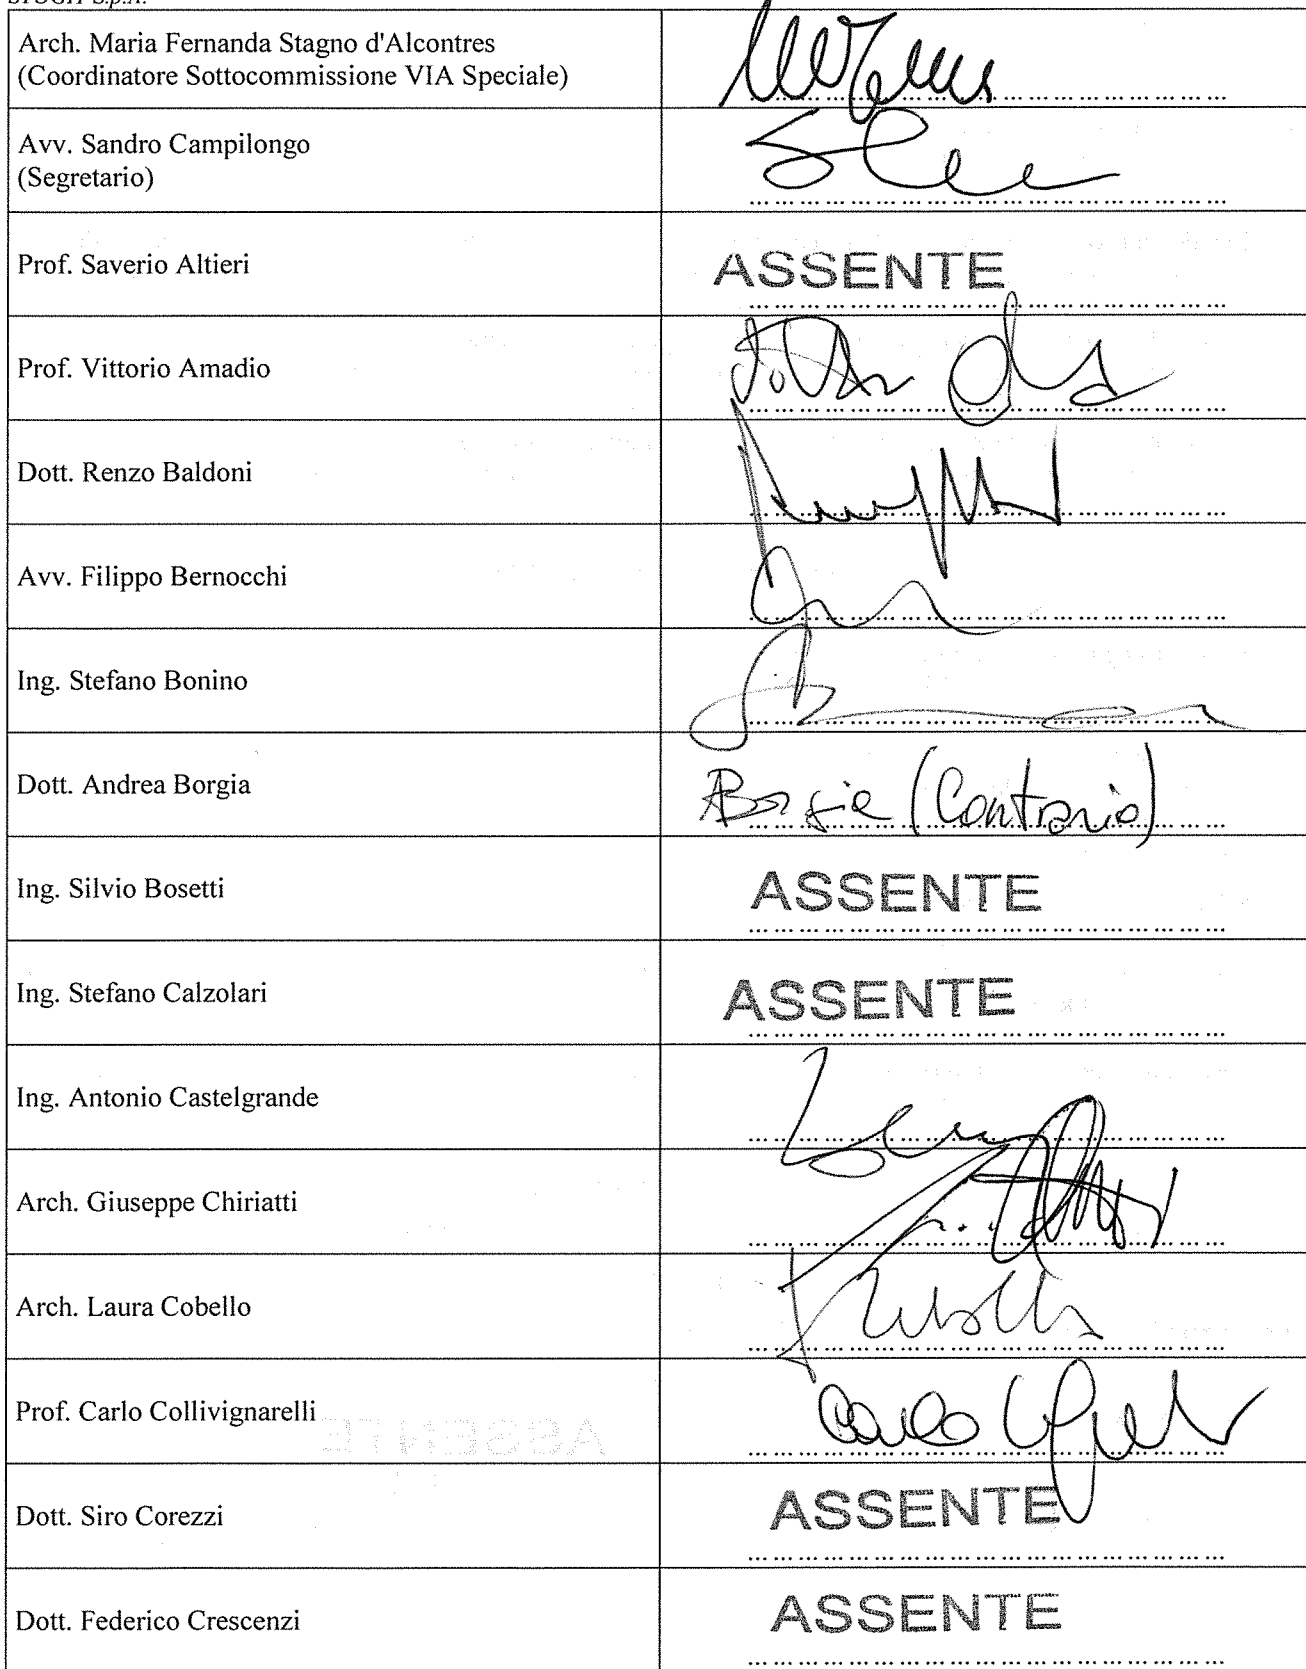 STOGIT S.p.A.
Arch. Maria Fernanda Stagno d'Alcontres
(Coordinatore Sottocommissione VIA Speciale)
Avv. Sandro Campilongo
(Segretario)
Prof. Saverio Altieri
ASSENTE
Prof. Vittorio Amadio
Dott. Renzo Baldoni
Avv. Filippo Bernocchi
Ing. Stefano Bonino
Dott. Andrea Borgia
(Contrario)
Ing. Silvio Bosetti
ASSENTE
Ing. Stefano Calzolari
ASSENTE
Ing. Antonio Castelgrande
Arch. Giuseppe Chiriatti
Arch. Laura Cobello
Prof. Carlo Collivignarelli
Carlo
Dott. Siro Corezzi
ASSENTE
Dott. Federico Crescenzi
ASSENTE